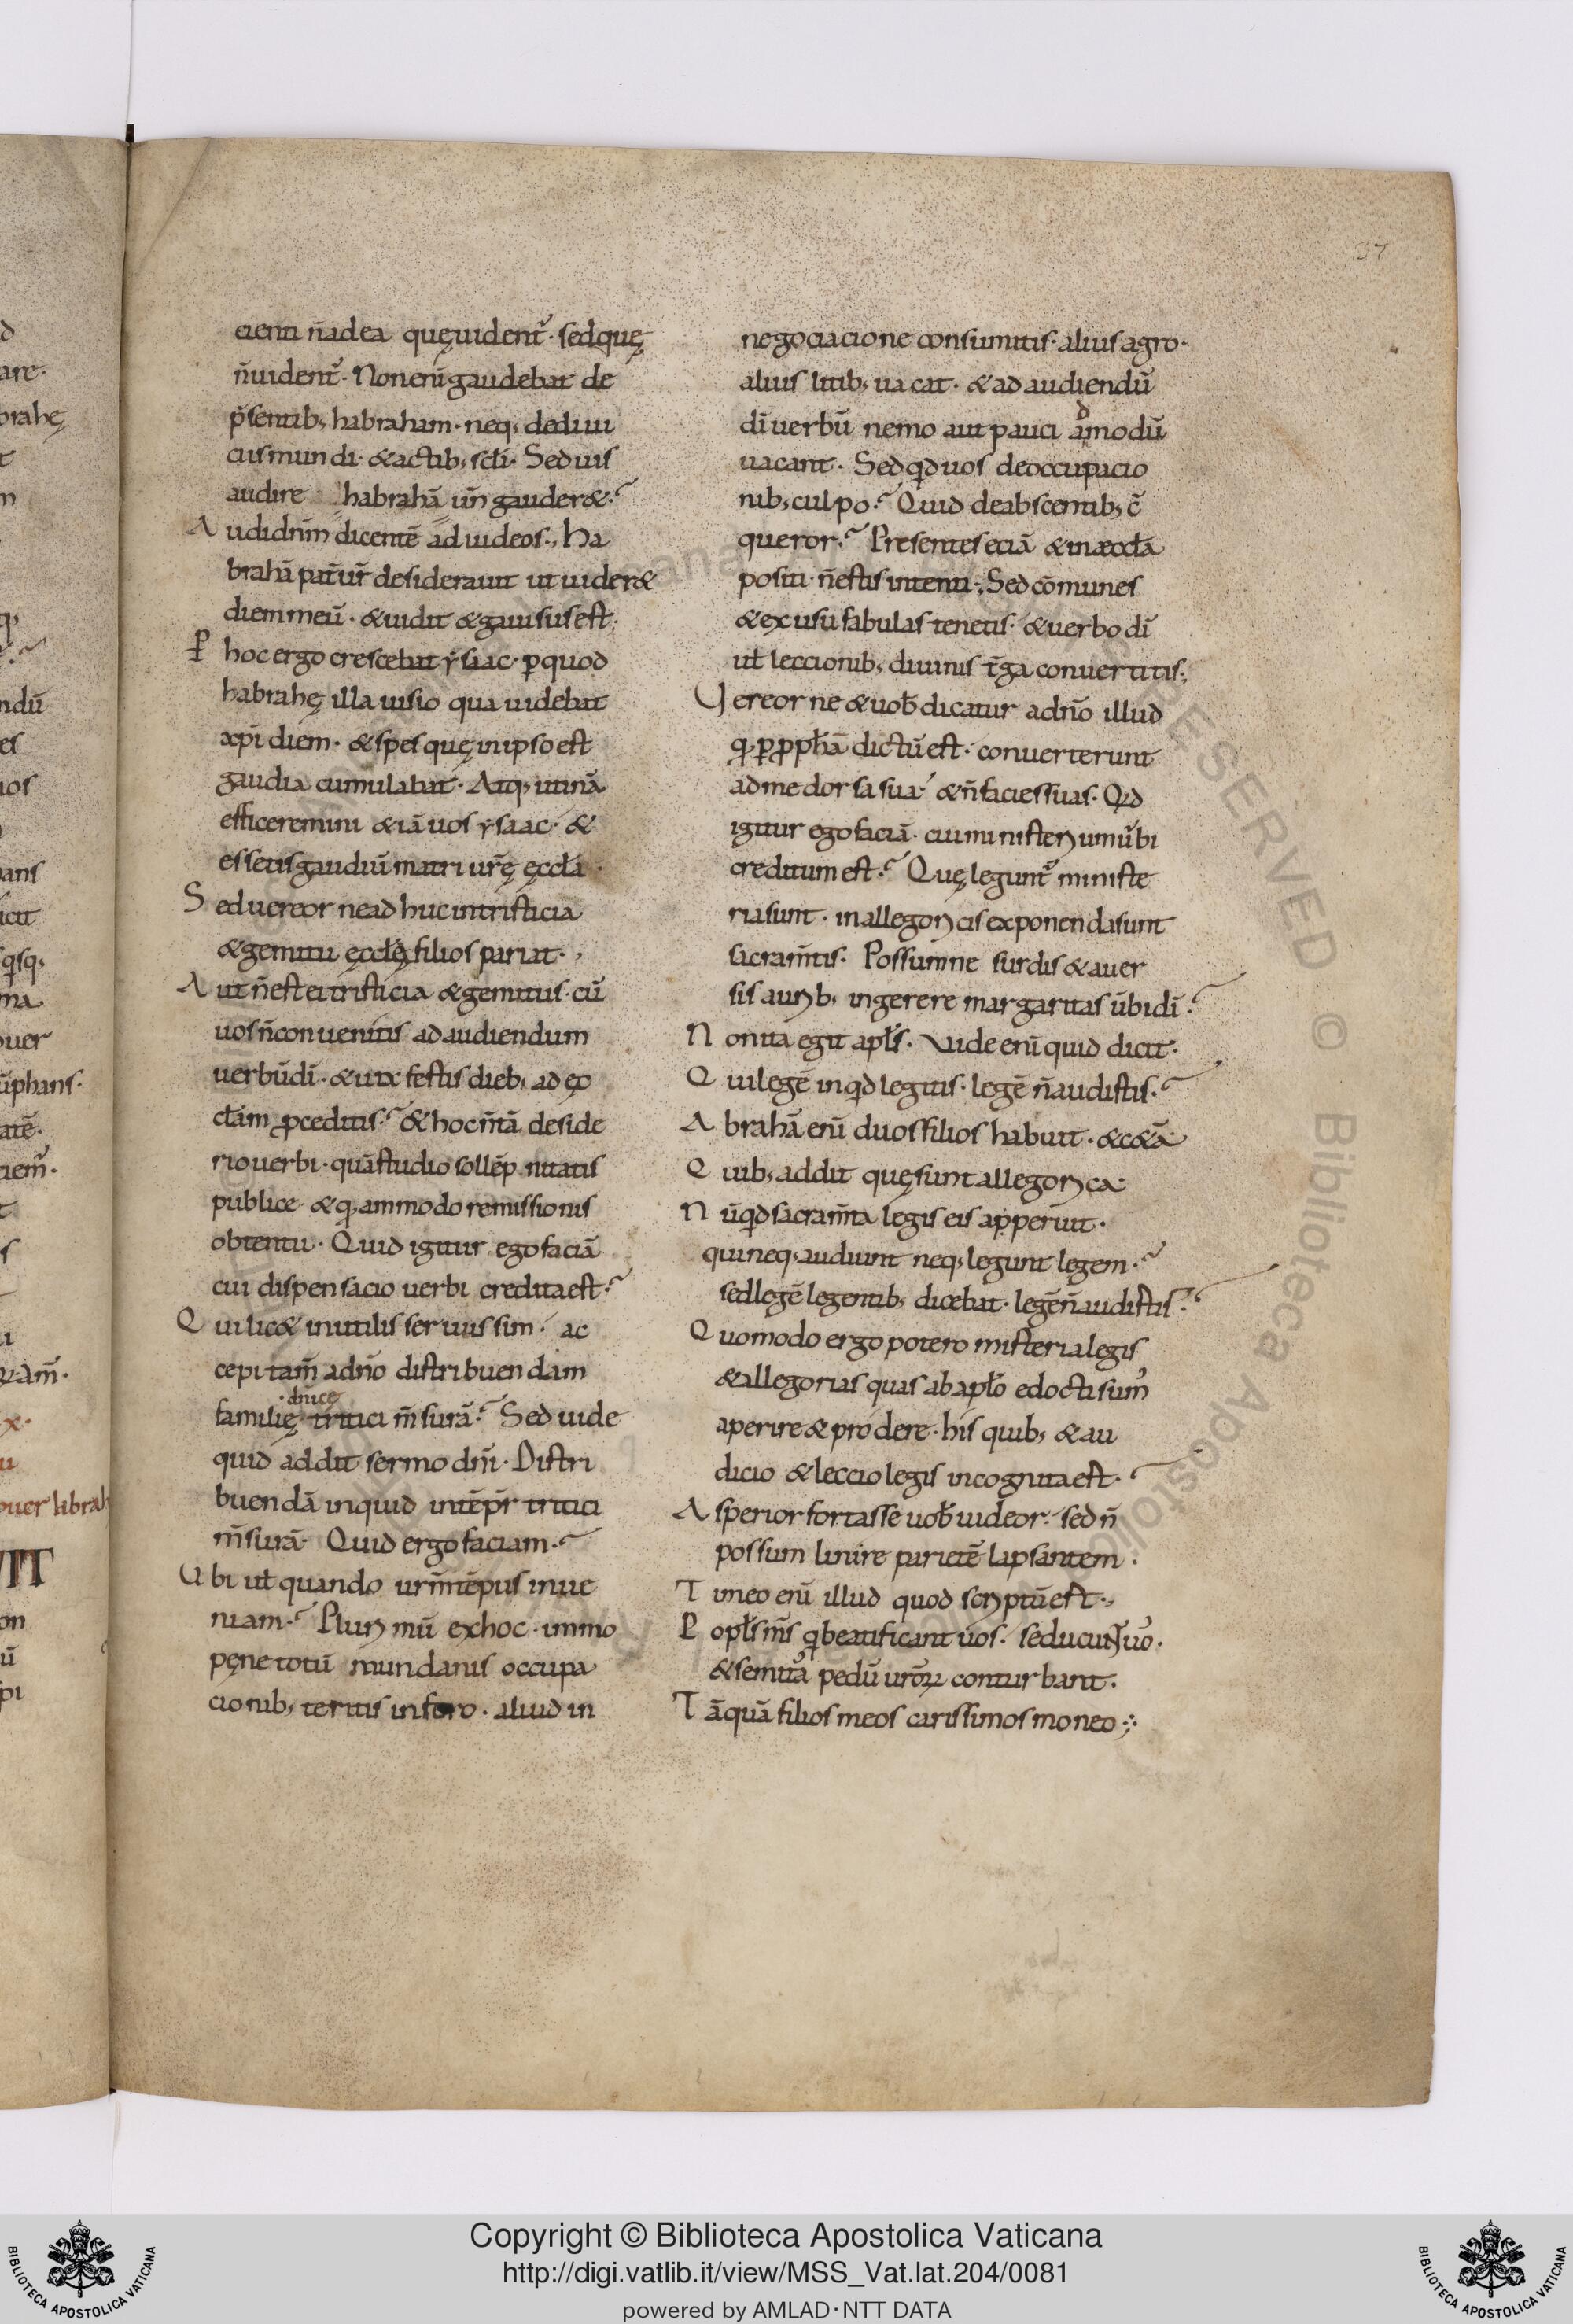 d
are·
brahę
t
m
q;
ndū
es
uos
pans
icit
q̇sq;
ma
puer
ūphans·
atē·
tiem̄·
t
s
ui
ꝝam̄·
x·
u
puer librah
VIT
on
ū
pi
37
cienti n̄ ad ea quę uident᷑· sed quę
n̄ uident᷑· Non eni gaudebat de
p̄sentib; habraham· neq; de diui
ciis mundi· & actib; scl̄i· Sed uis
audire habrahā un̄ gauder&·
Audi dn̄m dicentē ad iudeos·, Ha
brahā pat̄ ur̄ desiderauit ut uider&
diem meū· & uidit & gauisus est·
P hoc ergo crescebat ysaac· p quod
habrahę illa uisio qua uidebat
xp̄i diem· & spes quę in ipso est
gaudia cumulabat· Atq; utinā
efficeremini & iā uos ysaac· &
essetis gaudiū matri urę̄ ęccl̄a·
Sed uereor ne adhuc in tristicia
& gemitu ęccl̄ę filios pariat·,
Aut n̄ est ei tristicia & gemitus· cū
uos n̄ conuenitis ad audiendum
uerbū dī· & uix festis dieb; ad ęc
cl̄am ꝓceditis· & hoc n̄ tā deside
rio uerbi· quā studio sollēpnitatis
publice· & q;ammodo remissionis
obtentu· Quid igitur ego faciā
cui dispensacio uerbi credita est·
Qui lic& inutilis seruus sim· ac
cepi tam̄ a dn̄o distribuendam
·dn̄ice
familię tritici m̄surā· Sed uide
quid addit sermo dn̄i· Distri
buendā inquid in tēpr̄ tritici
m̄surā· Quid ergo faciam·
Ubi ut̄ quando urm̄ tēpus inue
niam· Plurimū ex hoc· immo
pęne totū mundanis occupa
cionib; teritis in foro· aliud in
negociacione consumitis· alius agro·
alius litib; uacat· & ad audiendū
dī uerbū nemo aut pauci amodū
d
uacant· Sed qd uos de occupacio
nib; culpo· Quid de abscentib; c̄
queror· Presentes eciā & in æccl̄a
positi· n̄ estis intenti·, Sed cōmunes
& ex usu fabulas tenetis· & uerbo dī
ut̄ leccionib; diuinis t̄ga conuertitis·,
Uereor ne & uob̄ dicatur a dn̄o illud
q; p ꝓph̄ā dictū est· conuerterunt
ad me dorsa sua· & n̄ facies suas· Qd
igitur ego faciā· cui ministeriū mū̄bi
creditum est· Quę legunt᷑ ministe
ria sunt· in allegoricis exponenda sunt
sacram̄tis· Possumne surdis & auer
sis aurib; ingerere margaritas ūbi dī·
Non ita egit apl̄s· Uide enī quid dicit·
Qui legē inqd legitis· legē n̄ audistis·
Abrahā enī duos filios habuit· & c&ā
Quib; addit quę sunt allegorica·
Nūqd sacram̄ta legis eis apperuit·
qui neq; audiunt neq; legunt legem·
sed legē legentib; dicebat· legē n̄ audistis·
Quomodo ergo potero misteria legis
& allegorias quas ab apl̄o edocti sum᷒
aperire & prodere· his quib; & au
dicio & leccio legis incognita est·
Asperior fortasse uob̄ uideor· sed n̄
possum linire parietē lapsantem·
Timeo enī illud quod scriptū est·,
Popl̄s m̄s q beatificant uos· seducunt uo᷒·
& semita᷒ pedū uroꝝ conturbant·
Tāquā filios meos carissimos moneo·,
Copyright © Biblioteca Apostolica Vaticana
http://digi.vatlib.it/view/MSS_Vat.lat.204/0081
powered by AMLAD·NTT DATA
BIBLIOTECA APOSTOLICA VATICANA
BIBLIOTECA APOSTOLICA VATICANA